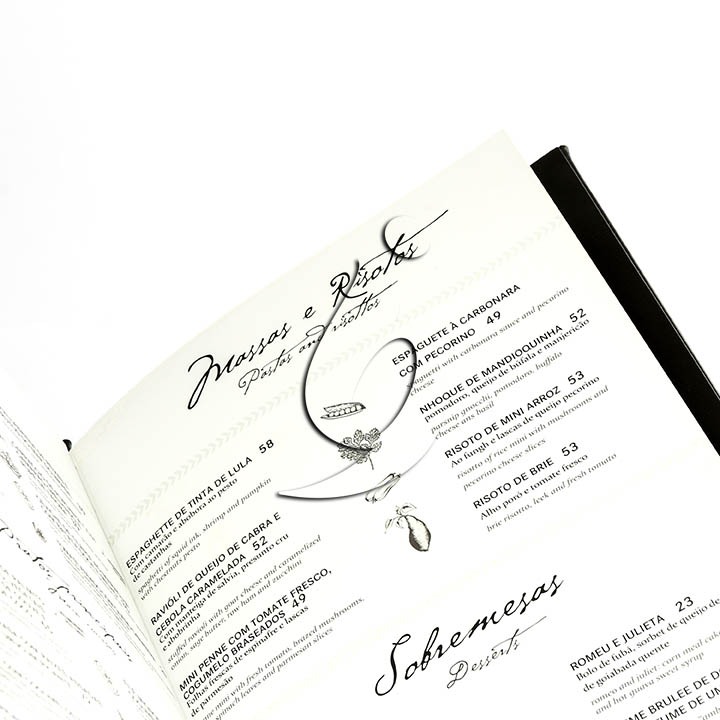 Massas e Risotos
Pastas and risottos
ESPAGHETTE DE TINTA DE LULA 58
Com camarão e abóbota ao pesto
de castanhas
spaghetti of squid ink, shrimp and pumpkin
with chestnuts pesto
RAVIÓLI DE QUEIJO DE CABRA E
CEBOLA CARAMELADA 52
Com manteiga de sálvia, presunto cru
e abobrinha
stuffed ravioli with goat cheese and caramelized
onion, sage butter, raw ham and zucchini
MINI PENNE COM TOMATE FRESCO,
COGUMELO BRASEADOS 49
Folhas frescas de espinafre e lascas
de parmesão
mini with fresh tomato, brazed mushrooms,
spinach leaves and parmesan slices
ESPAGUETE À CARBONARA
COM PECORINO 49
spaghetti with carbonara sauce and pecorino
cheese
NHOQUE DE MANDIOQUINHA 52
pomodoro, queijo de búfala e manjericão
parsnip gnocchi, pomodoro, buffalo
cheese ans basil
RISOTO DE MINI ARROZ 53
Ao funghi e lascas de queijo pecorino
risotto of rice mini with mushrooms and
pecorino cheese slices
RISOTO DE BRIE 53
Alho poró e tomate fresco
brie risotto, leek and fresh tomato
Sobremesas
Desserts
ROMEU E JULIETA 23
Bolo de fubá, sorbet de queijo de
de goiabada quente
romeo and juliet: corn meal
and hot guava sweet syrup
BRULEE DE
UME DE UM